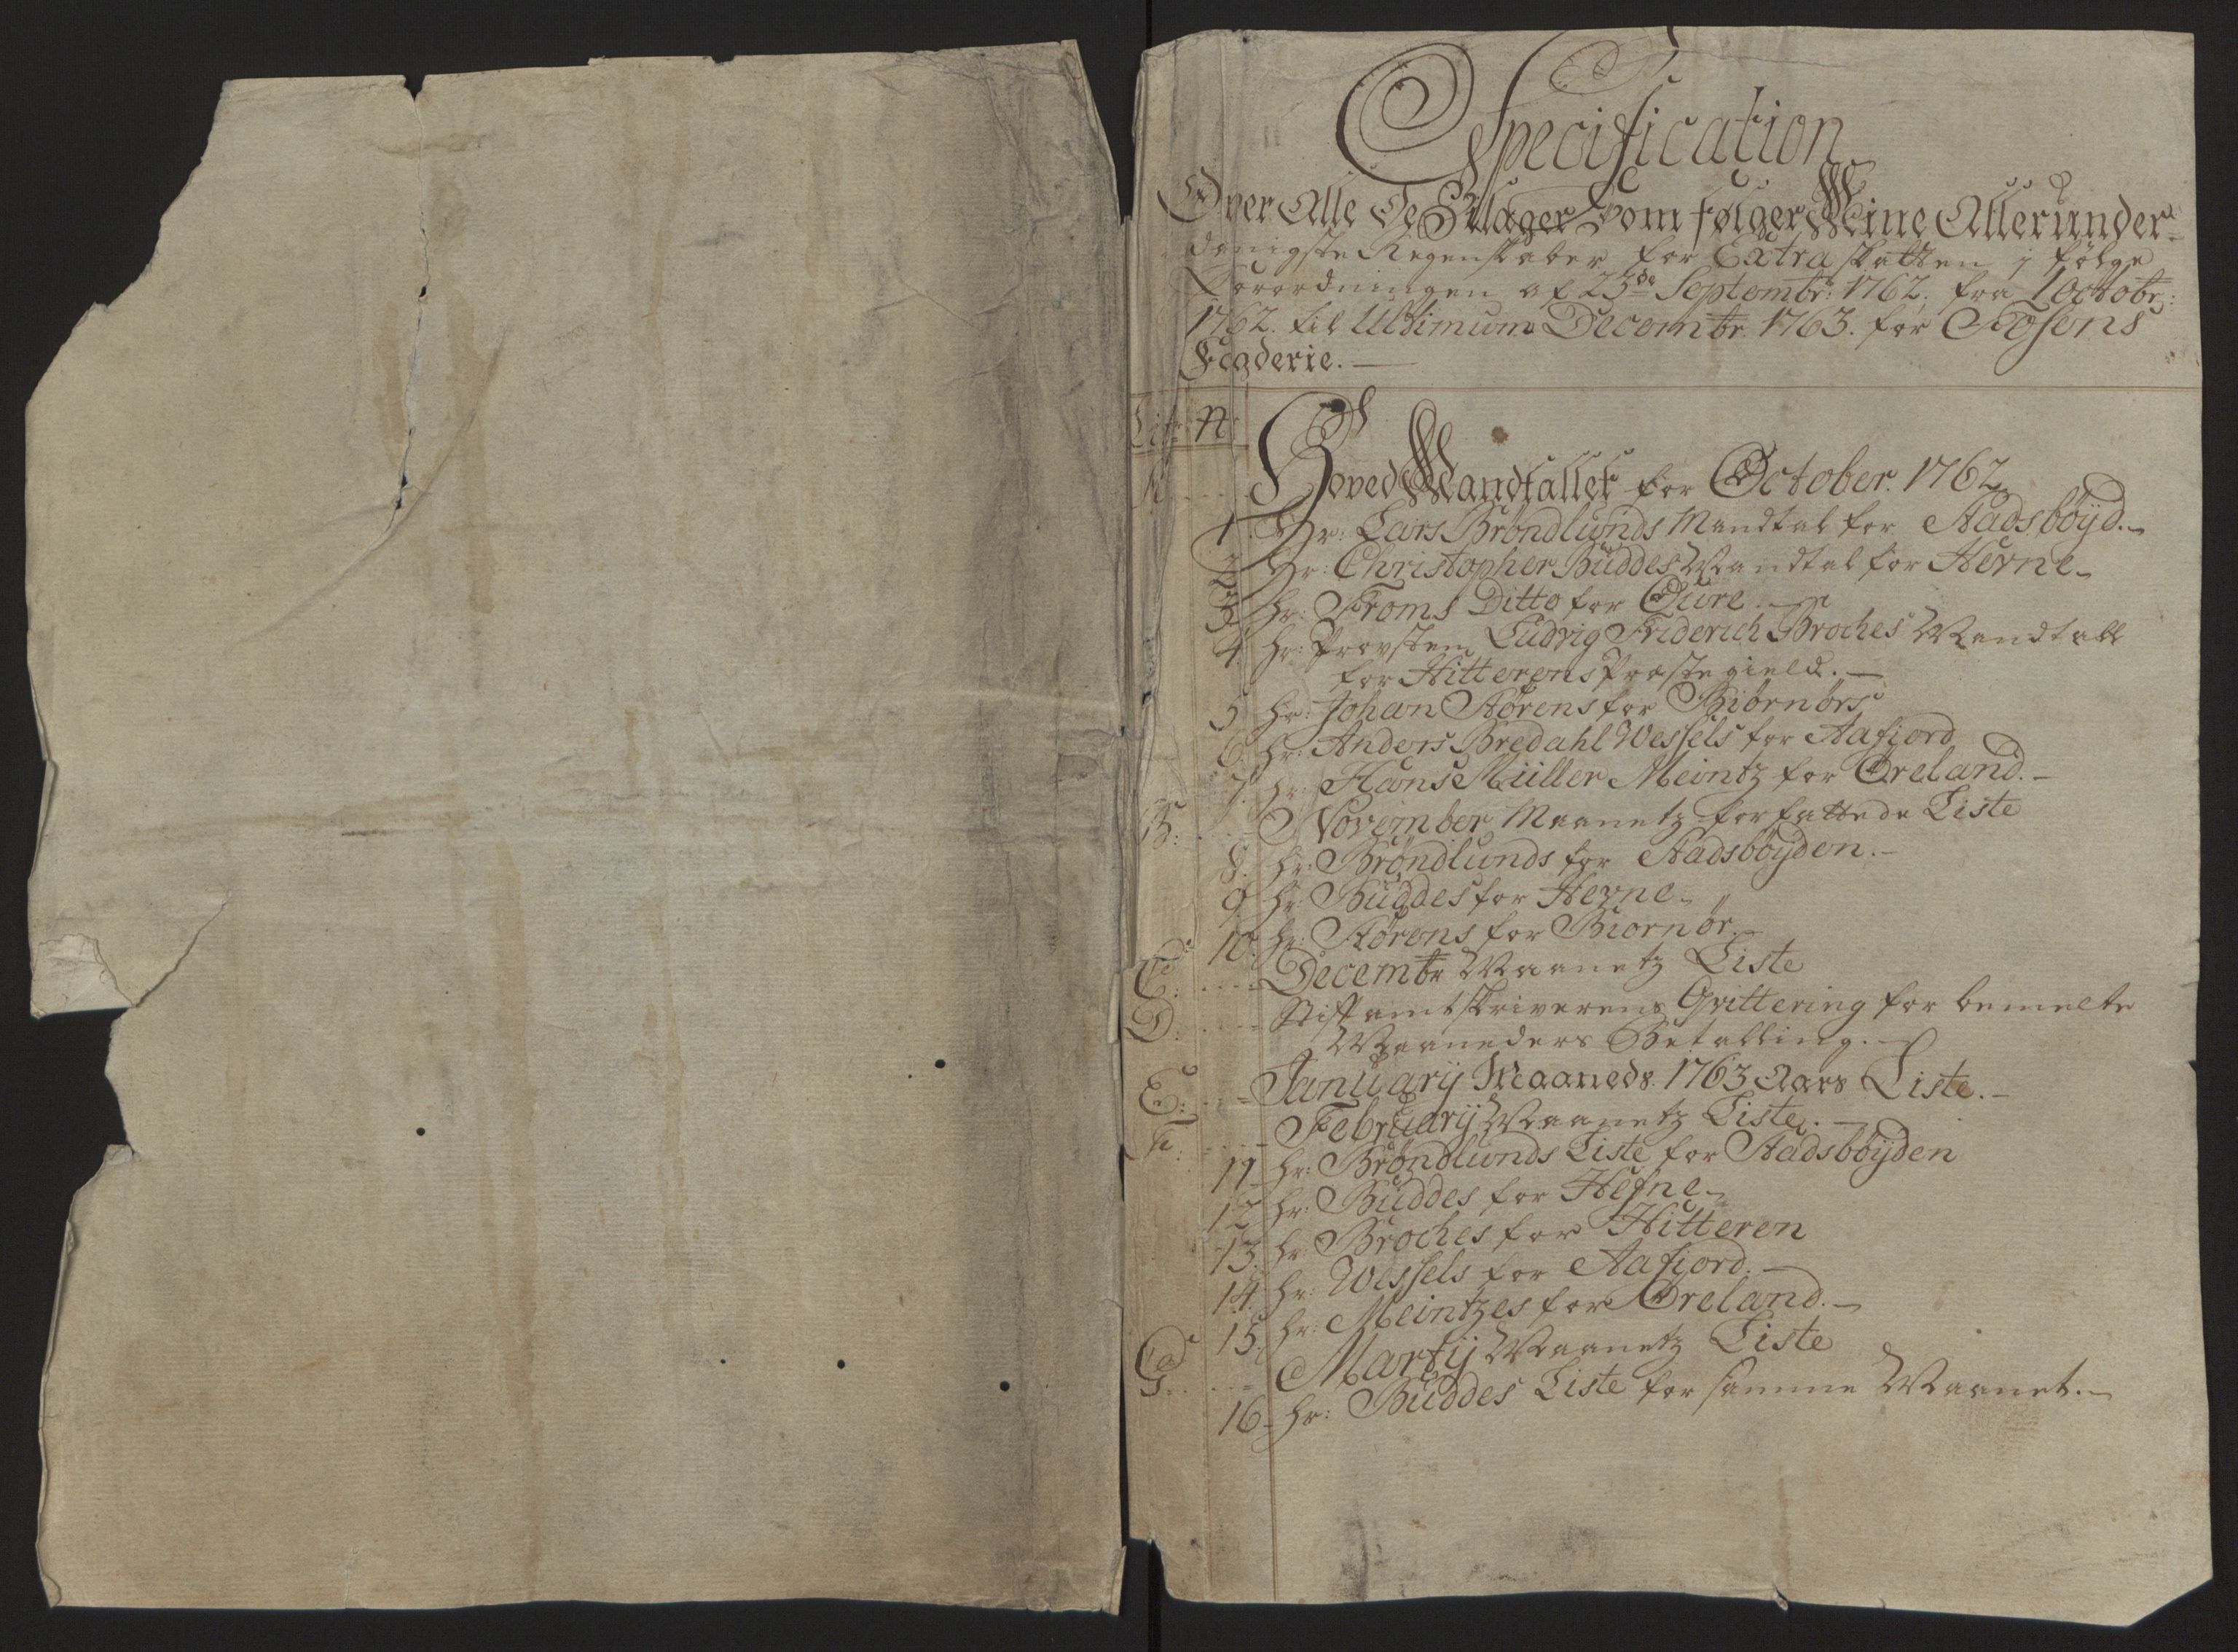 Specification
Over Alle De Bilager Som følger Mine Allerunder=
danigste Regenskaber for Extra skatten i følge
Forordningen af 23de Septembr: 1762. fra 1 Octobr:
1762. til Ultimum Decembr. 1763. for Fosens
Fogderie. —
Litr: N:
A. .... Hoved Mandtallet for October. 1762.
1. Hr: Lars Bröndlunds Mandtal for Stadsböyd. –
2 Hr: Christopher Buddes Mandtal for Hevne –
3. Hr: Froms Ditto for Öure. —
4. Hr: Provsten Ludvig Friderich Broches Mandtall
for Hitterens Præstegield. —
5 Hr: Johan Sörens for Biörnörs
6. Hr: Anders Bredahl Wessels for Aafiord
7. Hr: Hans Müller Meintz for Öreland. –
B: .... November Maanetz forfattede Liste
8. Hr: Bröndlunds for Stadsböyden. –
9 Hr: Buddes for Hevne –
10. Hr: Sörens for Biörnör. –
C: .... Decembr Maanetz Liste
D: .... Stiftamtskriverens Qvittering for bemelte
Maaneders Betalling. –
E: .... January Maaneds 1763 Aars Liste. –
F: .... February Maanetz Liste. –
11 Hr: Bröndlunds Liste for Stadsböyden
12 Hr: Buddes for Hefne –
13. Hr: Broches for Hitteren
14. Hr: Wessels for Aafiord. –
15. Hr: Meintzes for Öreland. –
G: .... Martij Maanetz Liste
16 – Hr: Buddes Liste for samme Maanet. –